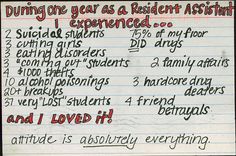 During one year as a Resident Assistant
I experienced...
2 Suicidal students 75% of my floor
3 cutting girls DID drugs
3 eating disorders
3 "coming out" students 2 family affairs
4 $1000 thefts
10 alcohol poisonings 3 hardcore drug
20+ breakups dealers
37 very "LOST" students 4 friend
betrayals
and I LOVED it!
attitude is absolutely everything.